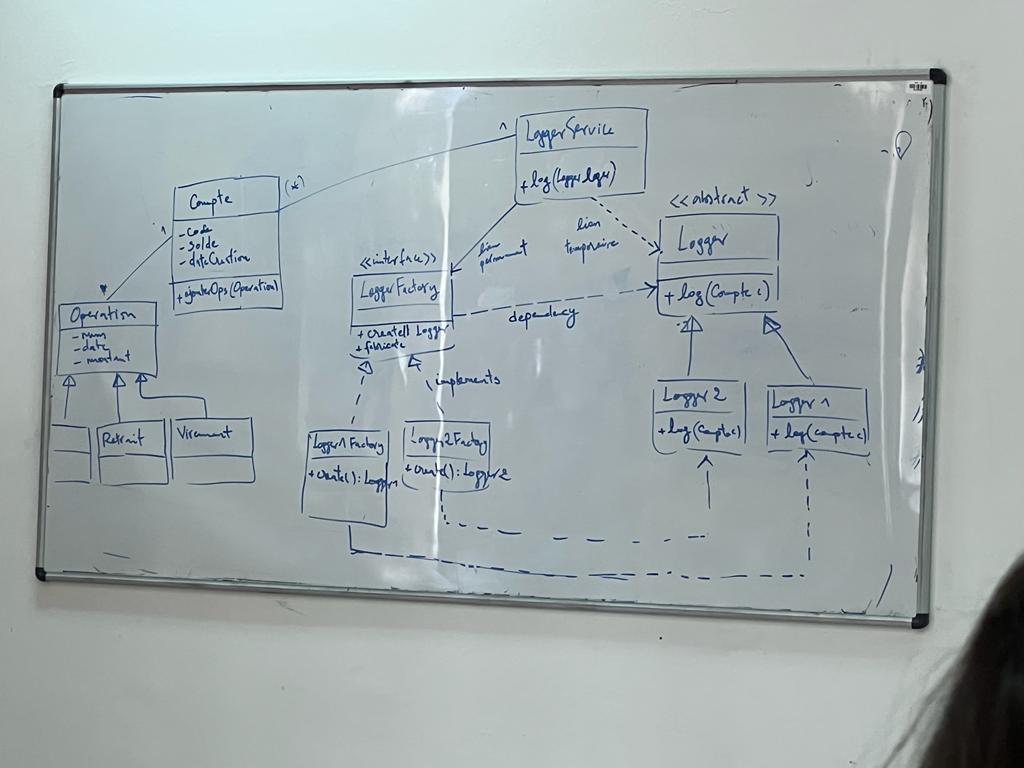 LoggerService
+ log(Logger lger)
1
(*)
Compte
- Code
- Solde
- dateCreation
+ ajouterOps(Operation)
1
*
Operation
- num
- date
- montant
Retrait
Virement
lien
permanent
lien
<<interface>>
LoggerFactory
+ create() Logger
+ fabricate
dependency
implements
Logger1Factory
+ create(): Logger1
Logger2Factory
+ create(): Logger2
<<abstract>>
Logger
+ log(Compte c)
Logger 2
+ log(Compte c)
Logger 1
+ log(compte c)